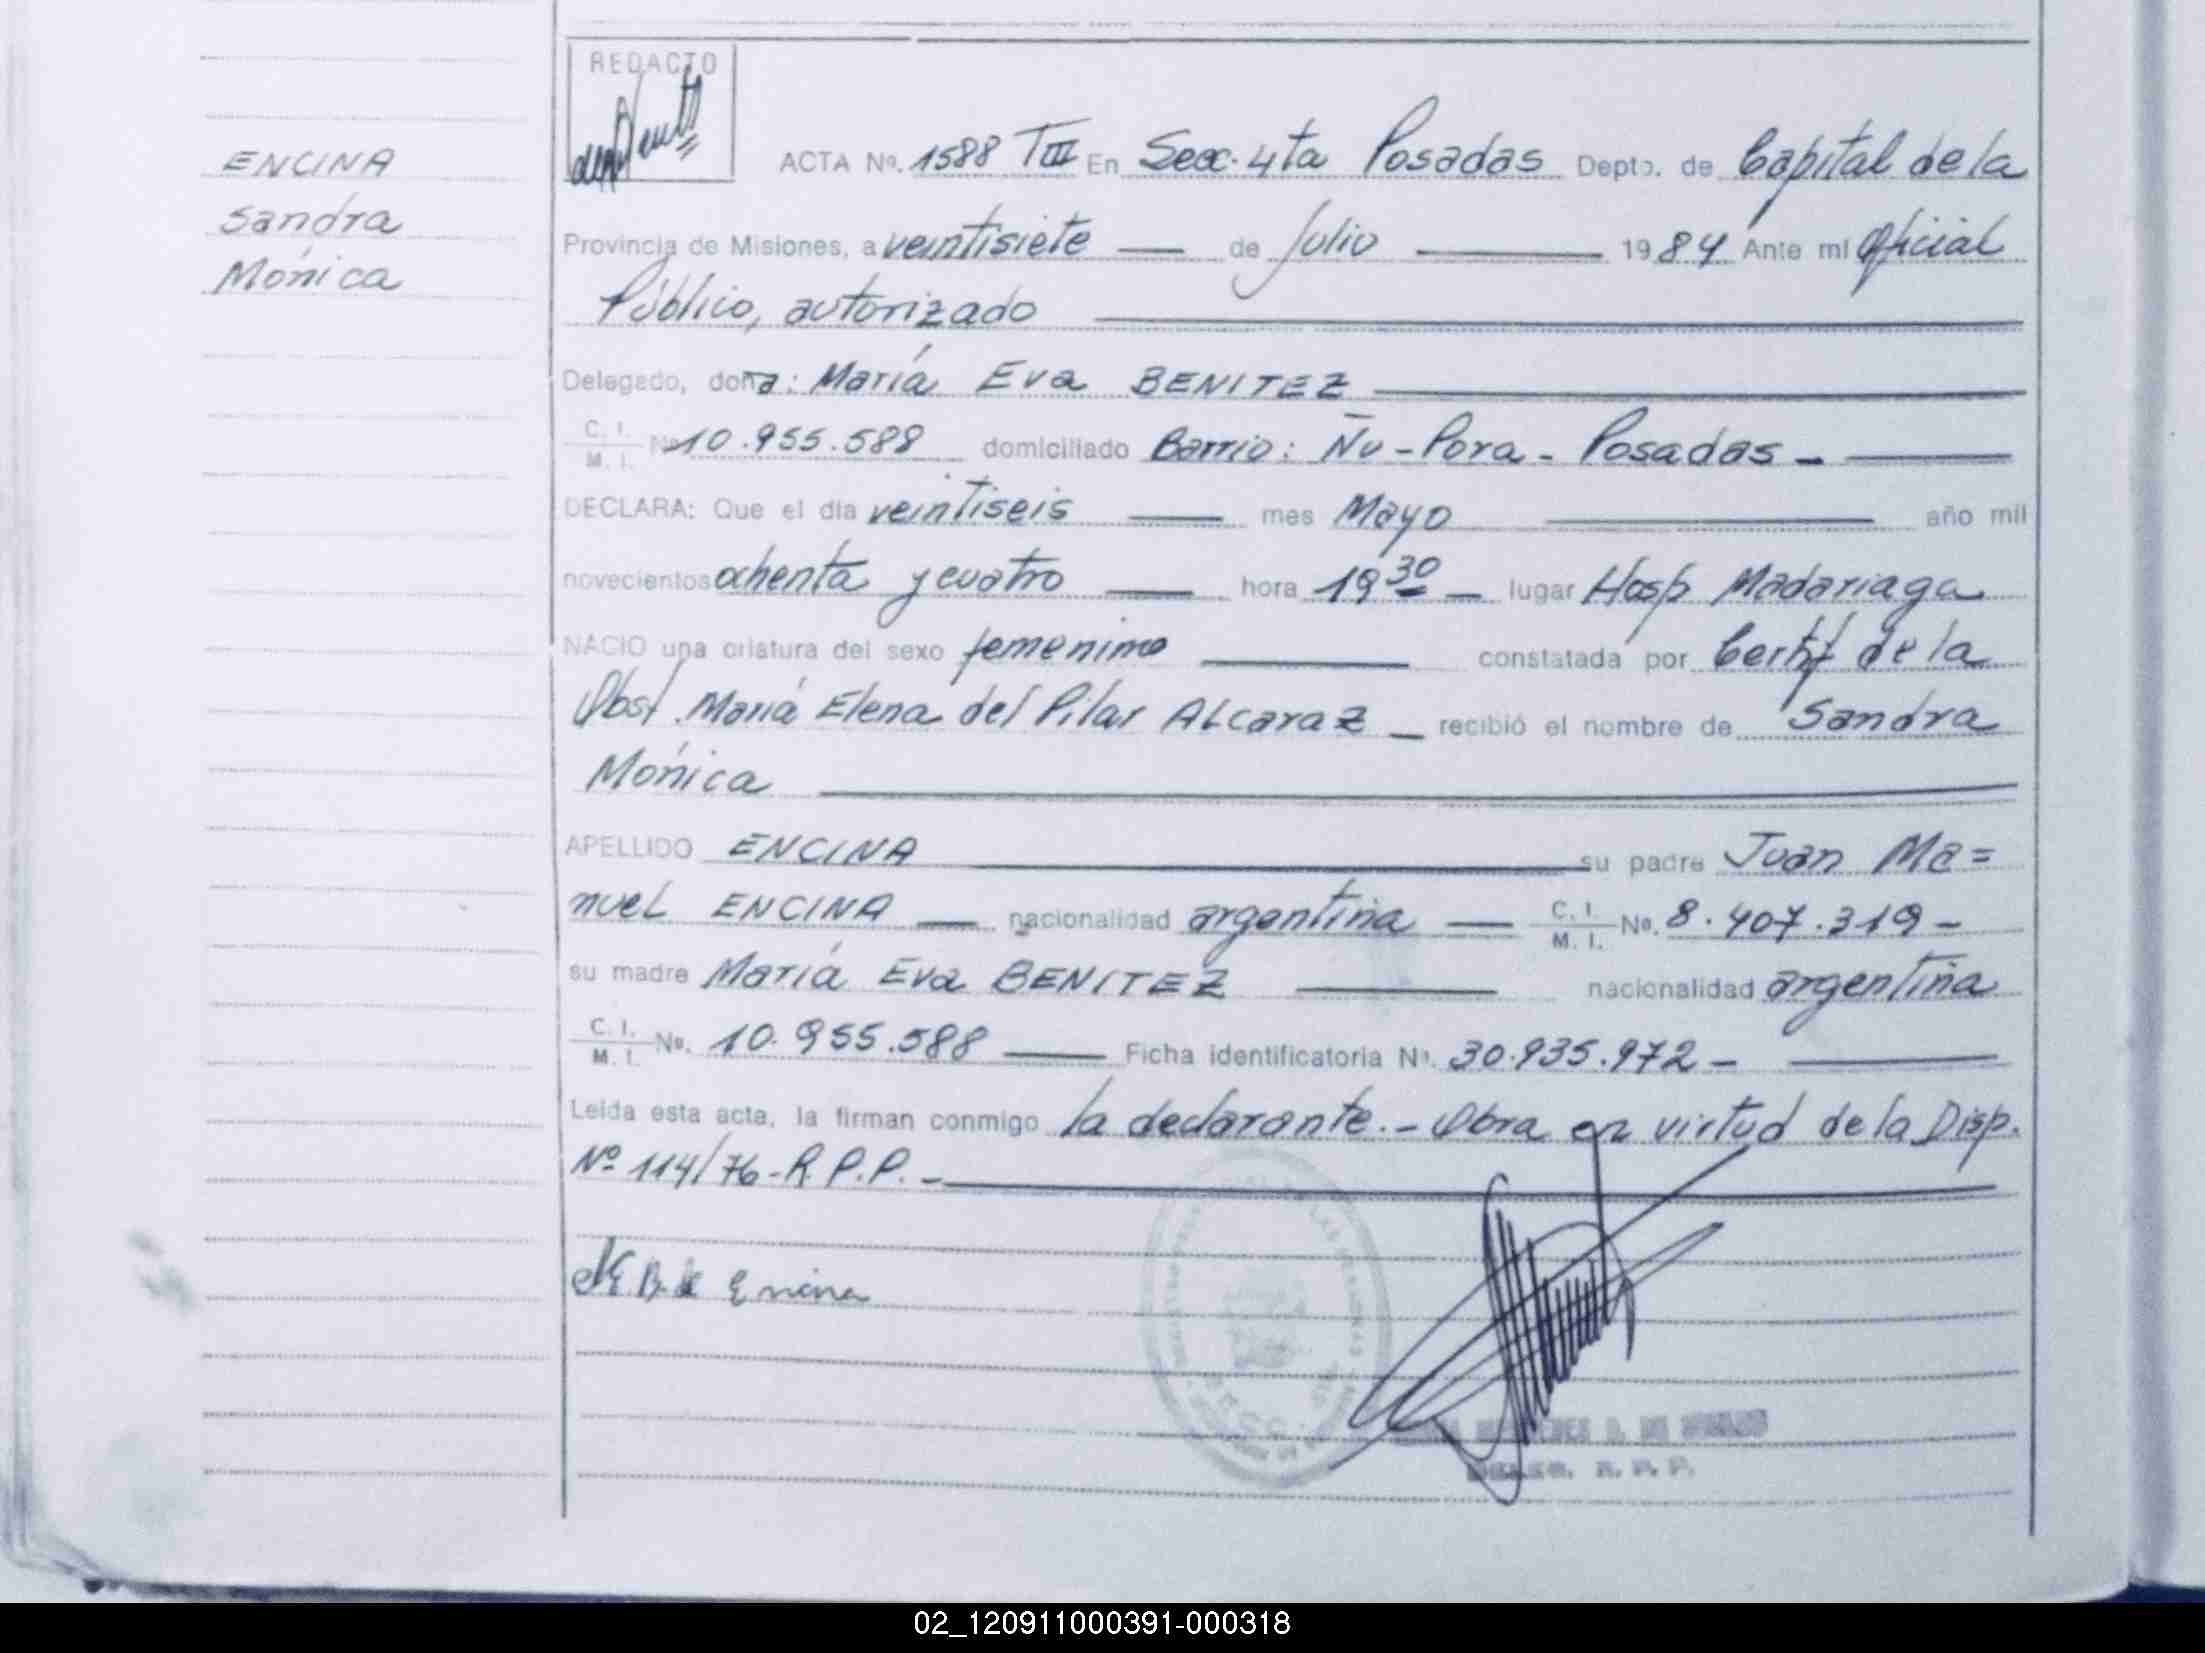 ENCINA
Sandra
Mónica
REDACTO
ACTA Nº. 1588 TIII En Secc. 4ta Posadas Depto. de Capital de la
Provincia de Misiones, a veintisiete — de Julio — 1984 Ante mí Oficial
Público, autorizado —
Delegado, doña: María Eva BENITEZ —
C. I. / M. I. Nº 10.955.588 domiciliado Barrio: Ñu-Pora - Posadas - —
DECLARA: Que el día veintiseis — mes Mayo — año mil
novecientos ochenta y cuatro — hora 19 30 — lugar Hosp Madariaga
NACIO una criatura del sexo femenino — constatada por Certif de la
Obst. María Elena del Pilar ALcaraz — recibió el nombre de Sandra
Mónica —
APELLIDO ENCINA — su padre Juan Ma=
nueL ENCINA — nacionalidad argentina — C. I. / M. I. Nº. 8.407.319 -
su madre María Eva BENITEZ — nacionalidad argentina
C. I. / M. I. Nº. 10.955.588 — Ficha identificatoria Nº. 30.935.972 - —
Leída esta acta, la firman conmigo la declarante.- Obra en virtud de la Disp.
Nº 114/76-R.P.P. - —
M E B. de Encina
R. P. P.
02_120911000391-000318